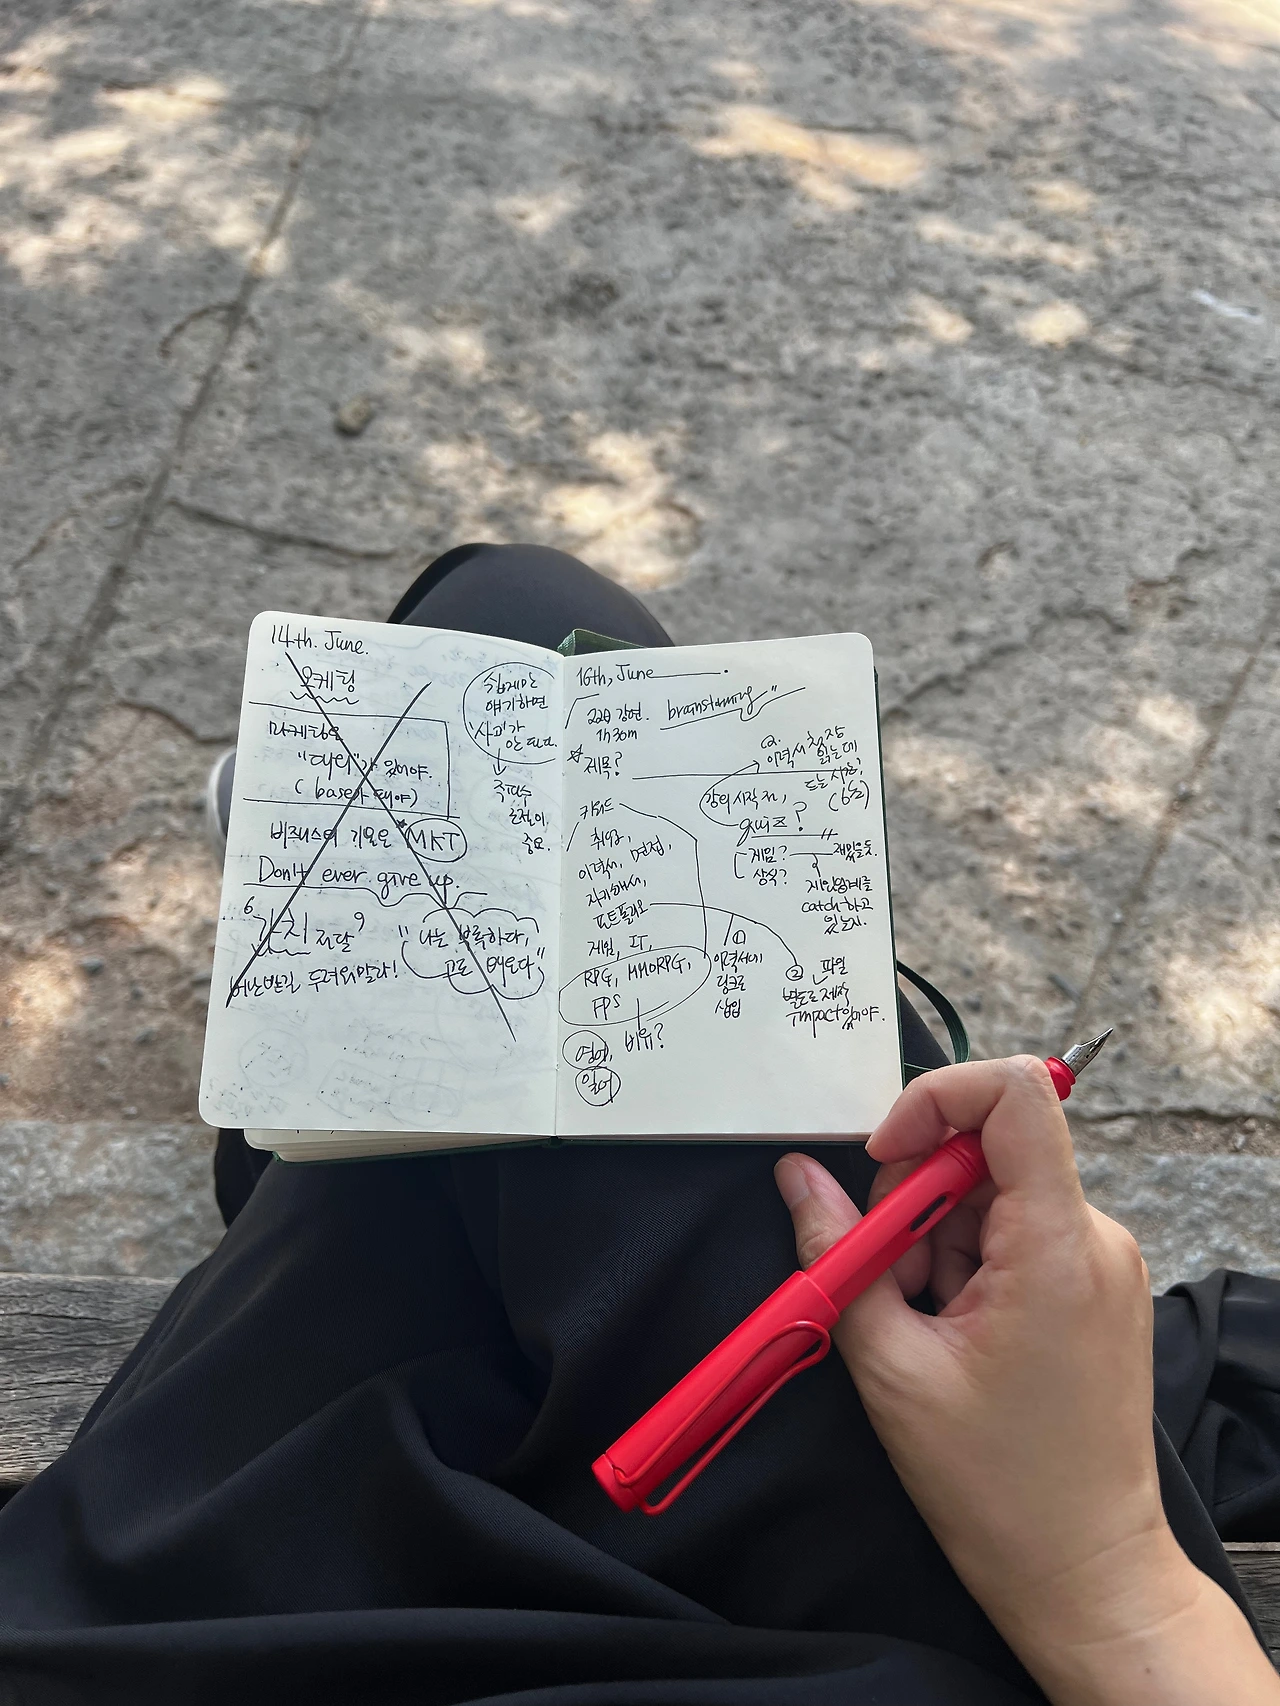 14th. June.
오케팅
마케팅은
"다리"가 있어야.
( base가 돼야)
비즈니스의 기본은 MKT
Don't ever give up.
가치 전달
"나는 부족하다,
고로 배운다"
비난받길 두려워말라!
쉽게만
얘기하면
사고가
안 된다.
꾸준수
중요.
16th, June
22일 강연.
1h 30m
brainstorming"
제목?
키워드
취업,
이력서, 면접,
자기소개서,
포트폴리오
게임, IT,
RPG, MMORPG,
FPS
비유?
영어,
일어
Q. 이력서 첫 장
읽는데
드는 시간?
(6초)
강의 시작 전,
quiz?
게임?
상식?
재밌을듯.
게임업계를
catch하고
있는지.
①
이력서에
링크로
삽입
② 파일
별도로 제작
impact있어야.